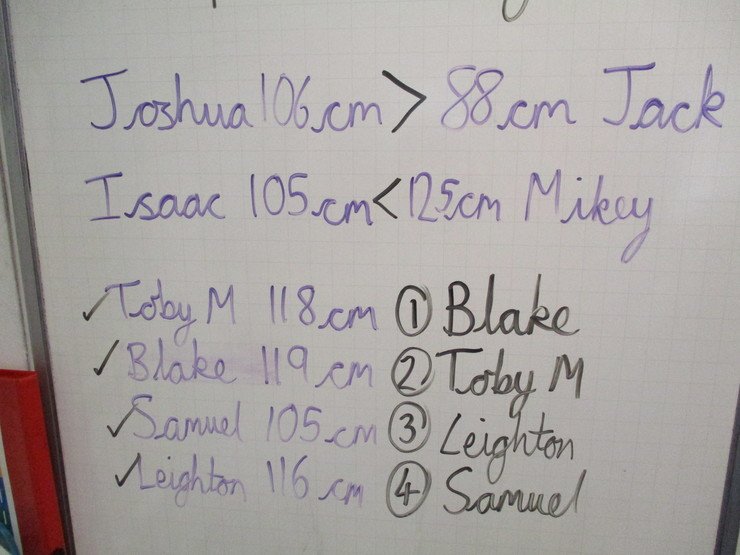 Joshua 106cm > 88cm Jack
Isaac 105cm < 125cm Mikey
✓ Toby M 118cm ① Blake
✓ Blake 119cm ② Toby M
✓ Samuel 105cm ③ Leighton
✓ Leighton 116cm ④ Samuel